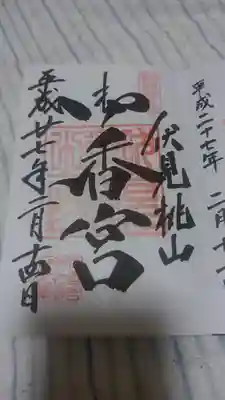 平成二十七年 二月十
伏見桃山
御香宮
平成廿七年二月十四日